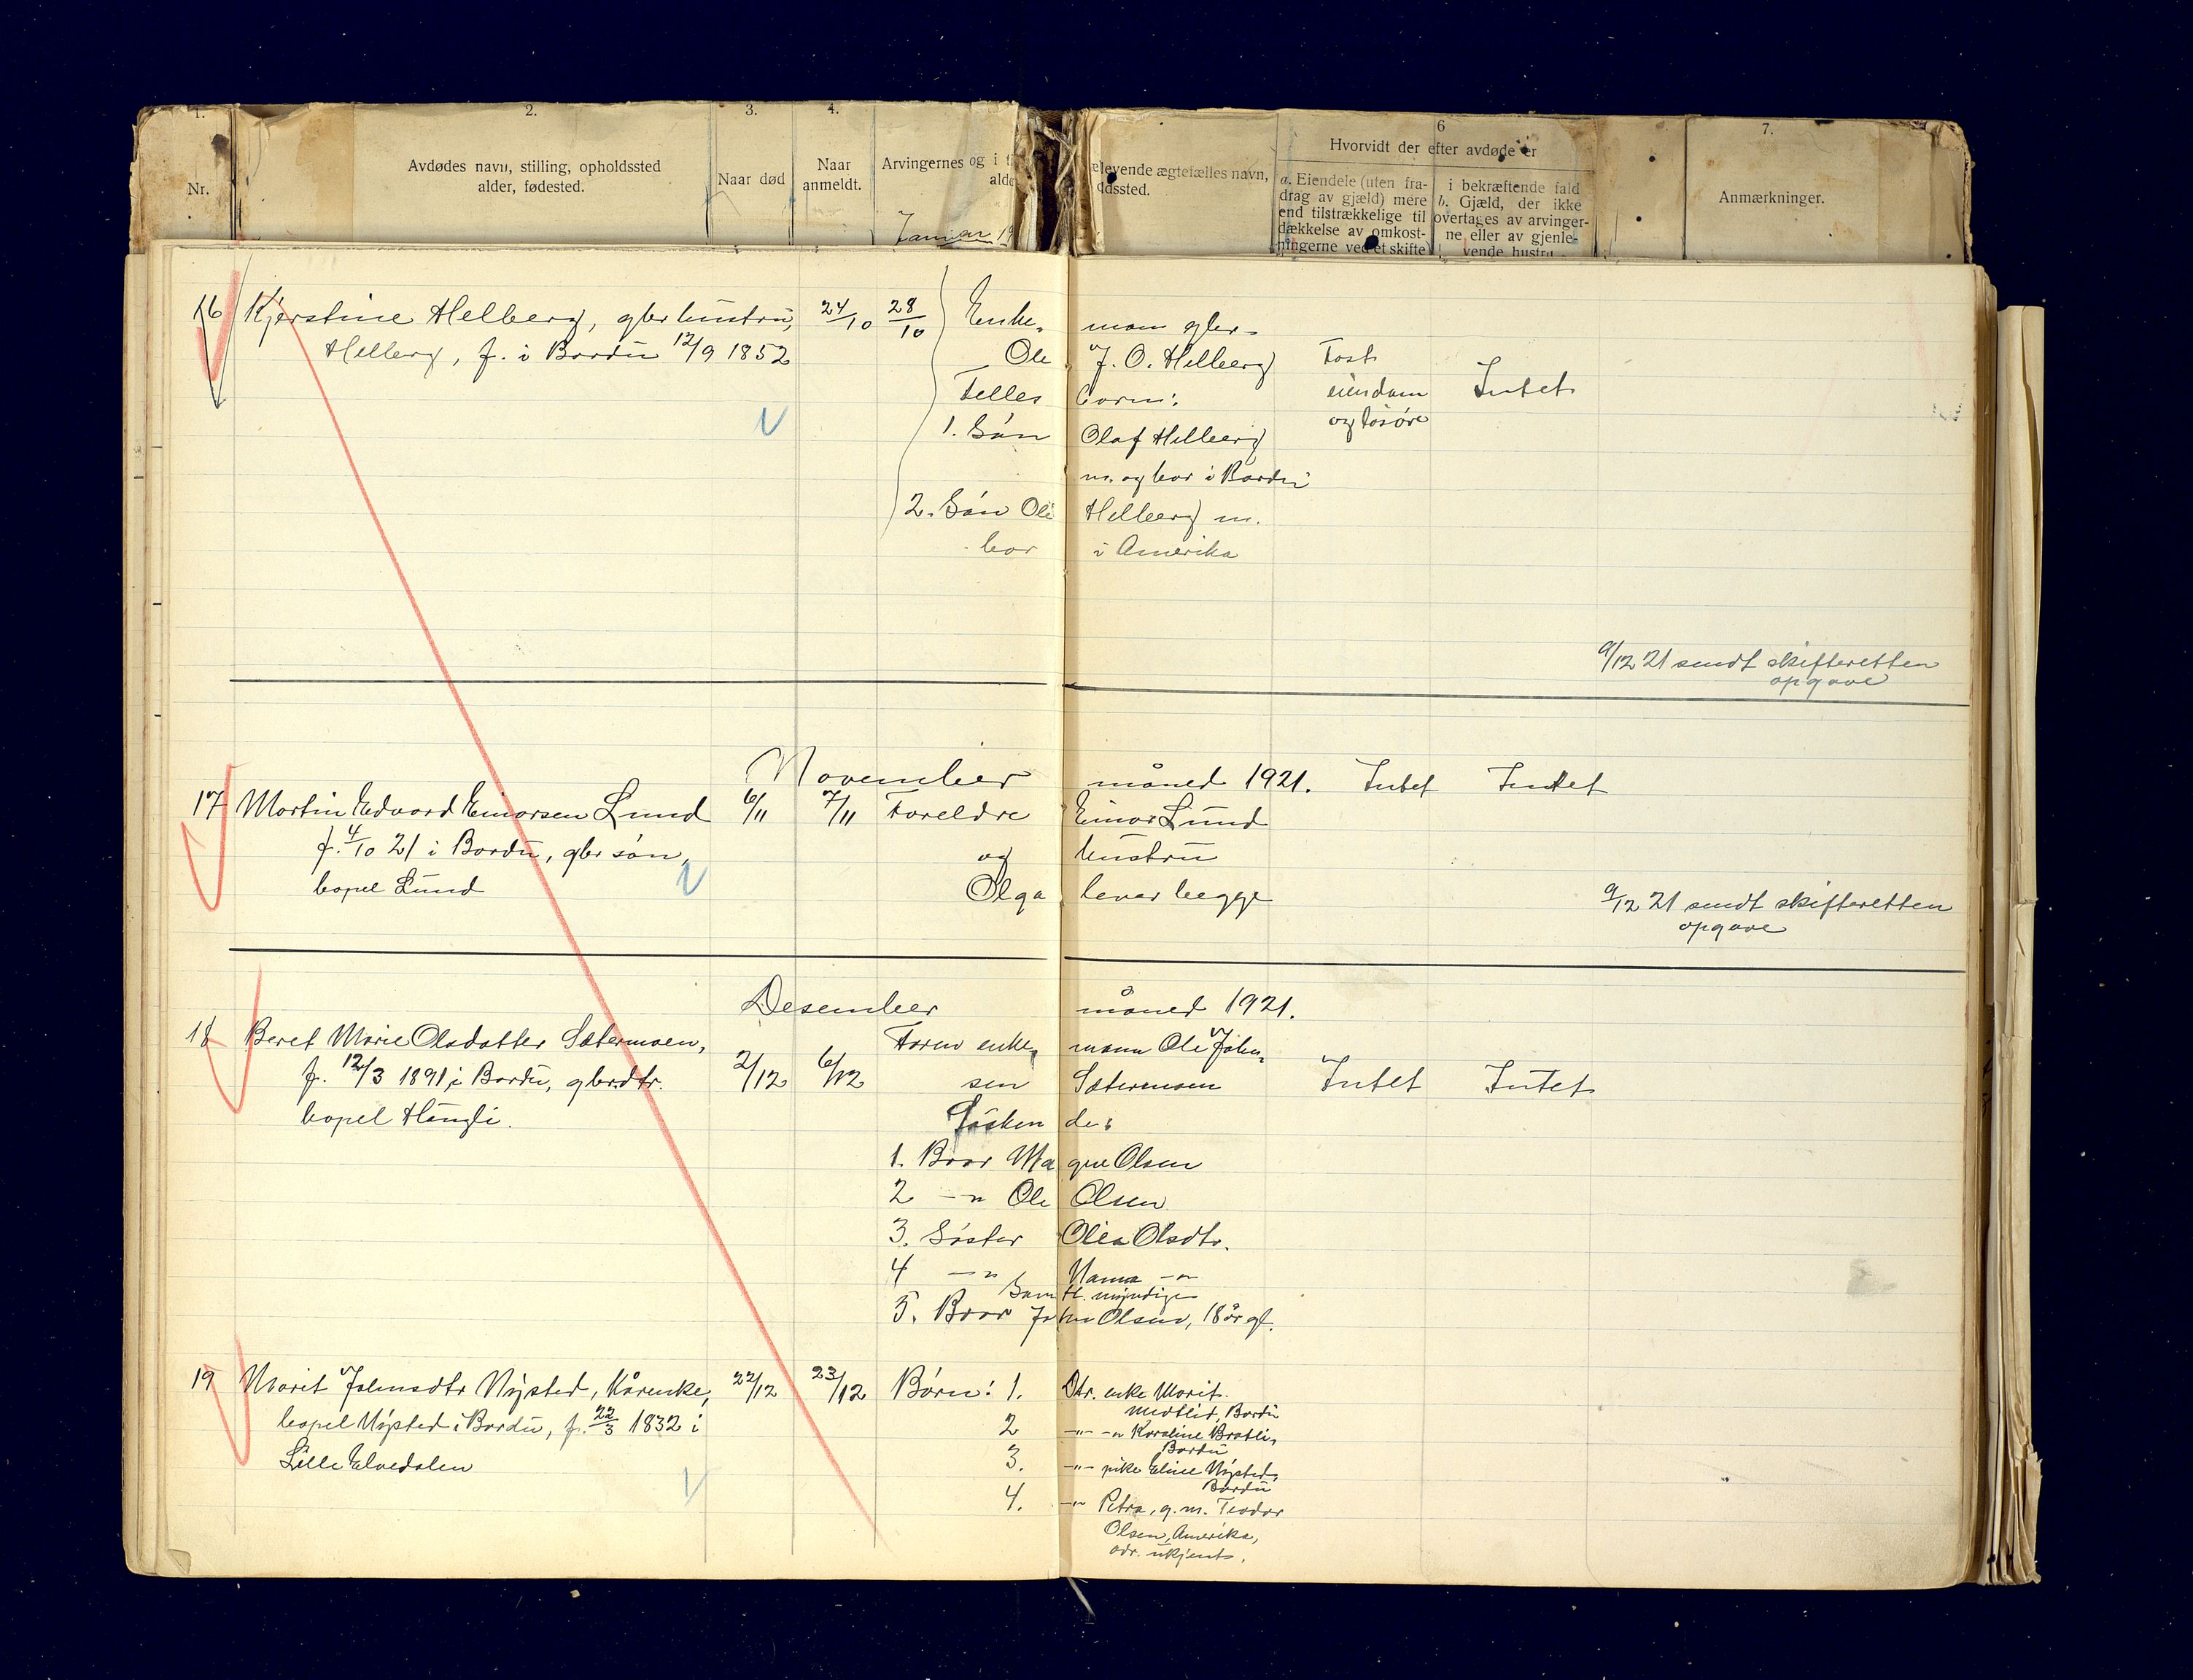 1. 2. 3. 4. 6 7.
Nr.
Avdødes navn, stilling, opholdssted
alder, fødested.
Naar død
Naar
anmeldt.
Arvingernes og i
alde
Januar 19
levende ægtefælles navn,
dssted.
Hvorvidt der efter avdøde er
a. Eiendele (uten fra-
drag av gjæld) mere
end tilstrækkelige til
dækkelse av omkost-
ningerne ved et skifte
i bekræftende fald
b. Gjæld, der ikke
overtages av arvinger-
ne eller av gjenle-
vende hustru
Anmærkninger.
16 Kjerstine Helberg, gbr hustru, 24/10 28/10 Enke- mann gbr.
Helberg, f. i Bardu 12/9 1852 Ole J. O. Helberg Fast
Felles barn: eiendom Intet
1. Søn Olaf Helberg og løsøre
m. og bor i Bardu
2. Søn Ole Helberg m.
bor i Amerika
9/12 21 sendt skifteretten
opgave
November måned 1921. Intet Intet
17 Martin Edvard Einarsen Lund 6/11 7/11 Foreldre Einar Lund
f. 4/10 21 i Bardu, gbr søn, og hustru
bopel Lund Olga lever begge
9/12 21 sendt skifteretten
opgave
Desember måned 1921.
18 Beret Marie Olsdatter Sætermoen, Faren enke- mann Ole John-
f. 12/3 1891 i Bardu, gbr.dtr. 2/12 6/12 sen Sætermoen Intet Intet
bopel Høngli. Søsken de:
1. Bror Magne Olsen
2 -"- Ole Olsen
3. Søster Olea Olsdtr.
4 -"- Nanna -"-
Samtl. myndige
5. Bror John Olsen, 18 år gl.
19 Marit Johnsdtr Nysted, Kårenke, 22/12 23/12 Børn: 1. Dtr. enke Marit
bopel Nysted i Bardu, f. 22/3 1832 i Medtlid, Bardu
2 -"- -"- Karoline Bratli,
Bardu
Lille Elvedalen 3. -"- pike Eline Nysted,
Bardu
4. -"- Petra, g. m. Teodor
Olsen, Amerika,
adr. ukjent.